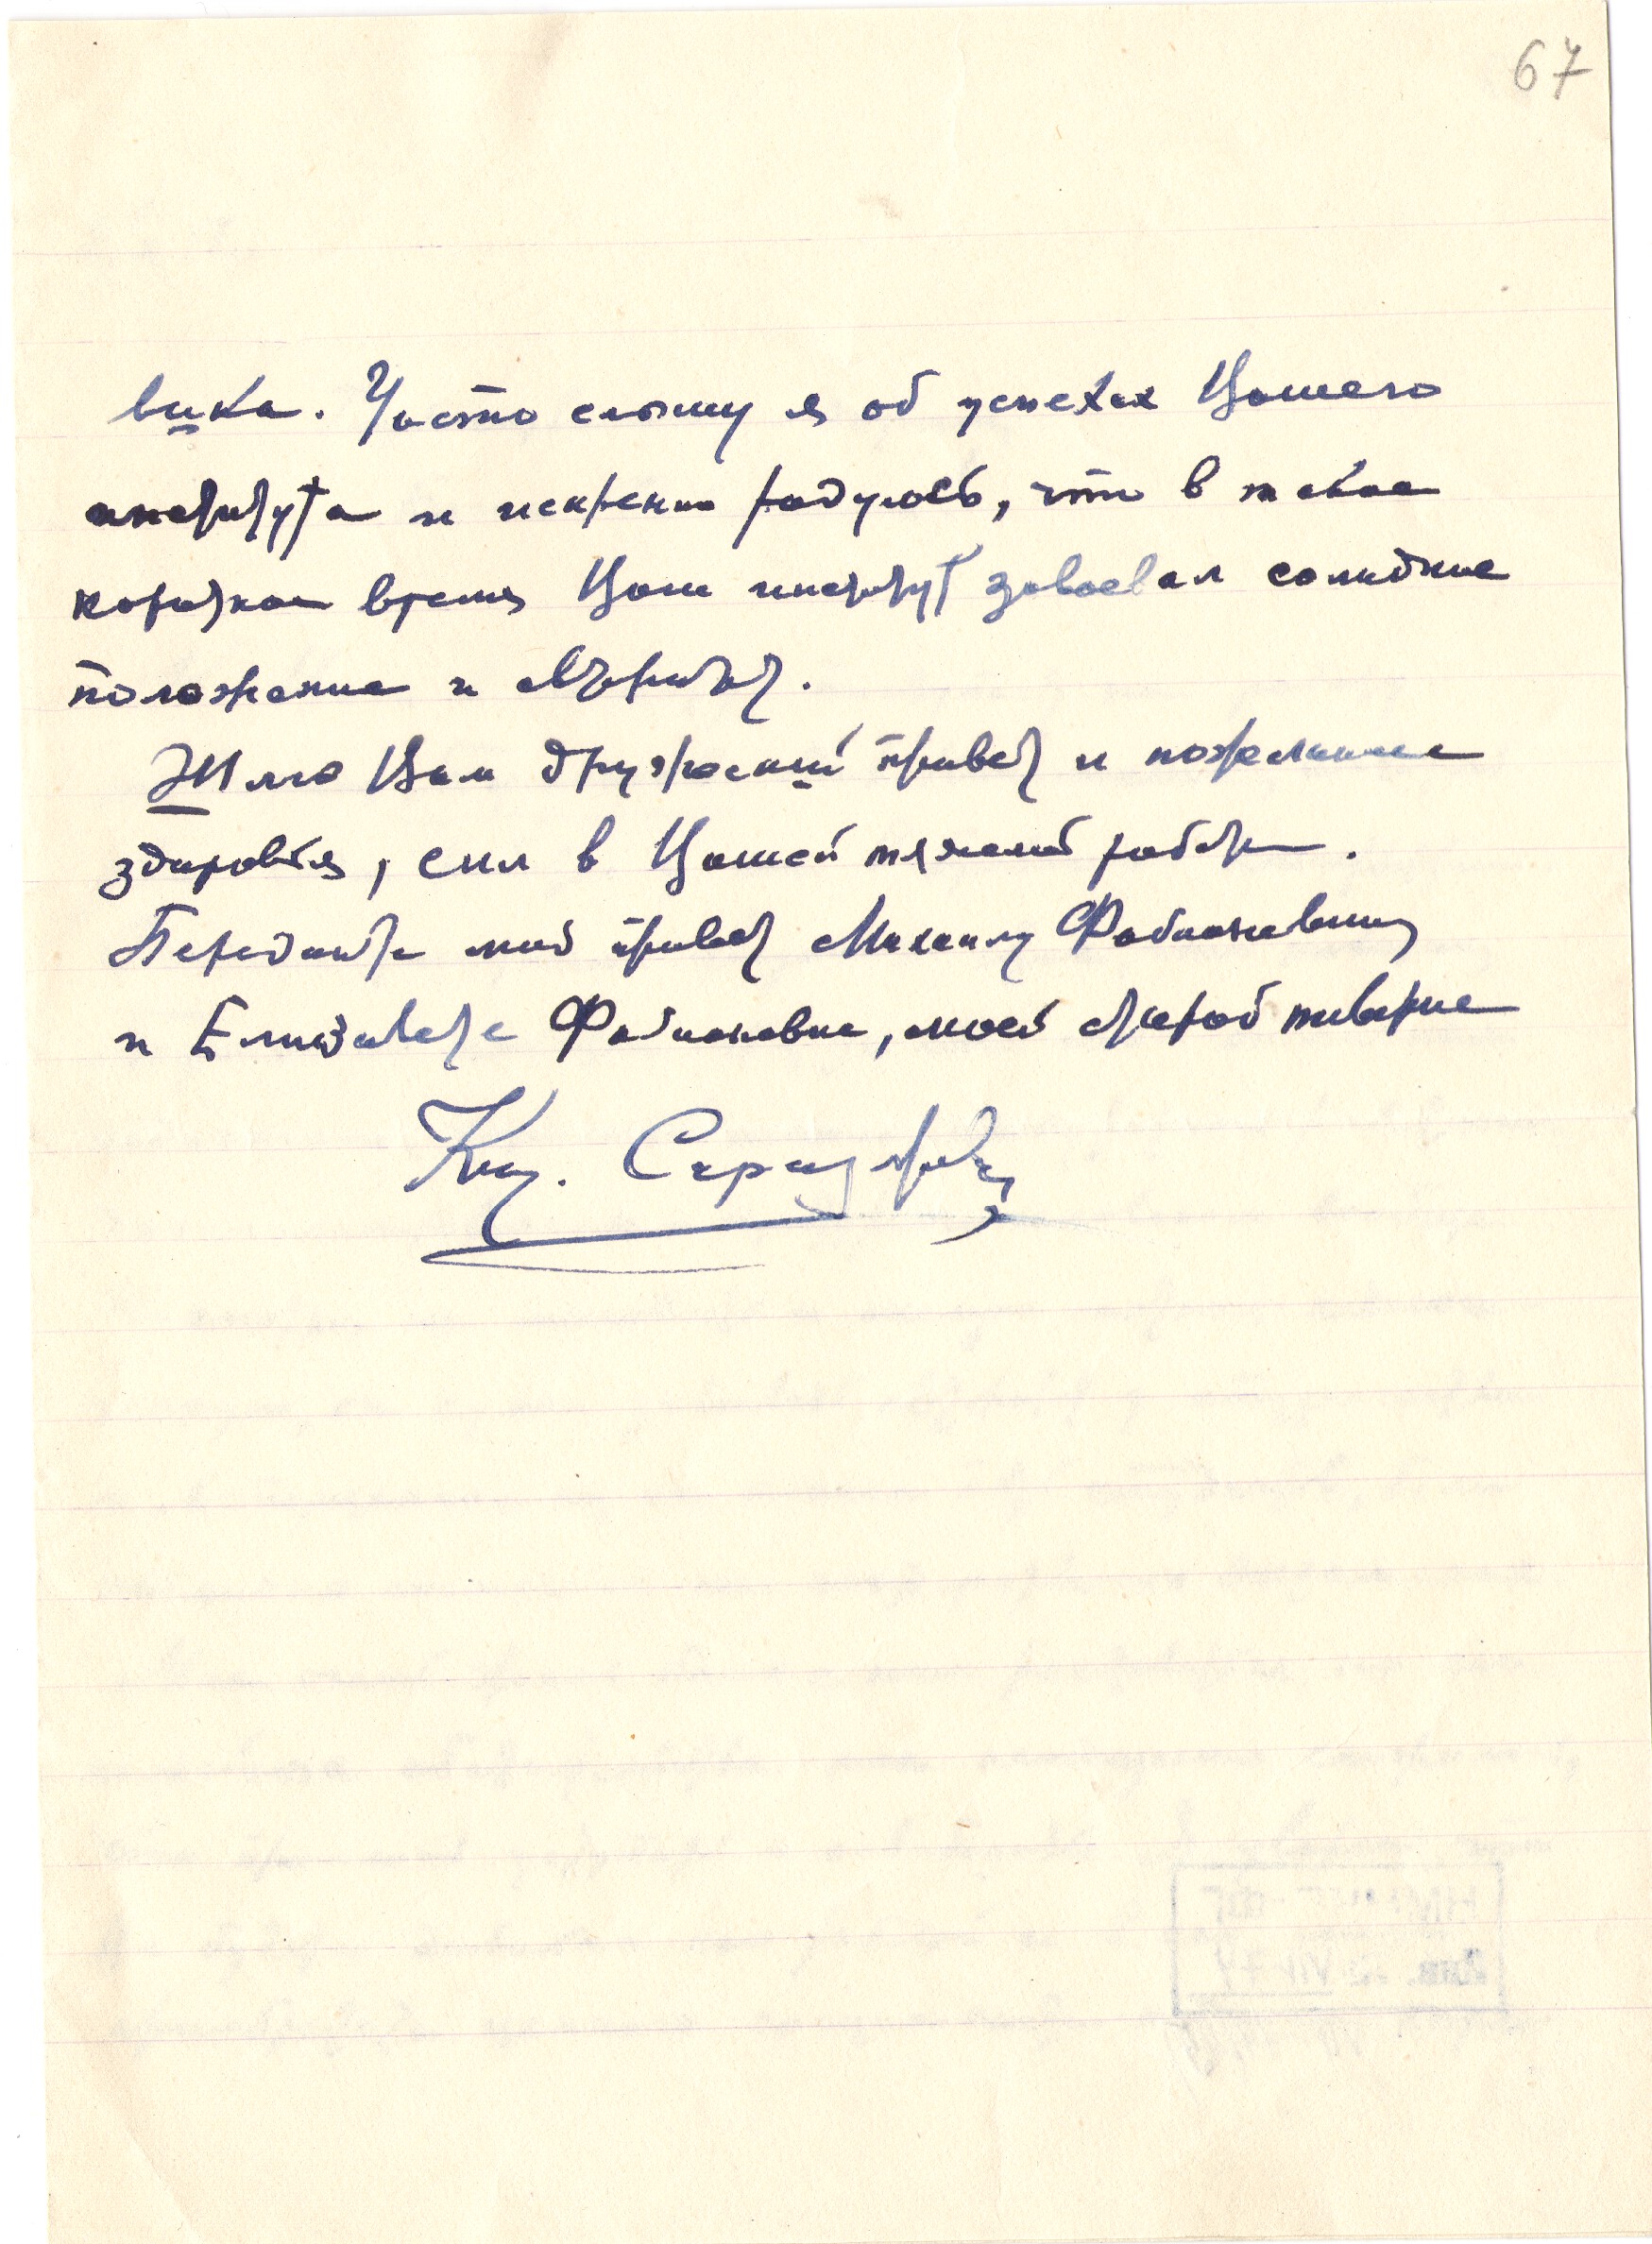 67
вика. Часто слышу я об успехах Вашего
института и искренно радуюсь, что в такое
короткое время Ваш институт завоевал солидное
положение и авторитет.
Шлю Вам дружеский привет и пожелание
здоровья, сил в Вашей тяжелой работе.
Передайте мой привет Михаилу Фабиановичу
и Елизавете Фабиановне, моей старой